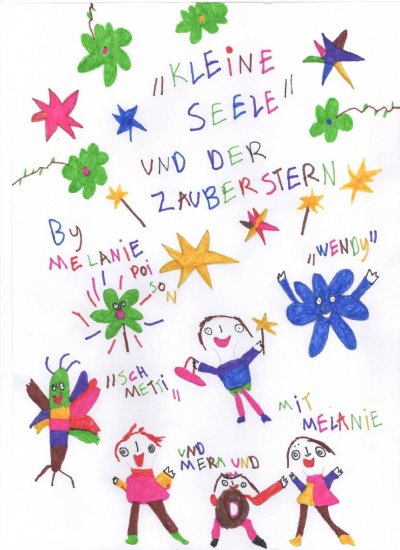 "KLEiNE
SEELE"
UND DER
ZAUBERSTERN
By
MELANiE
POiSON
"WENDY"
"SCHMETTi"
MiT
MELANiE
UND
MERA UND
O